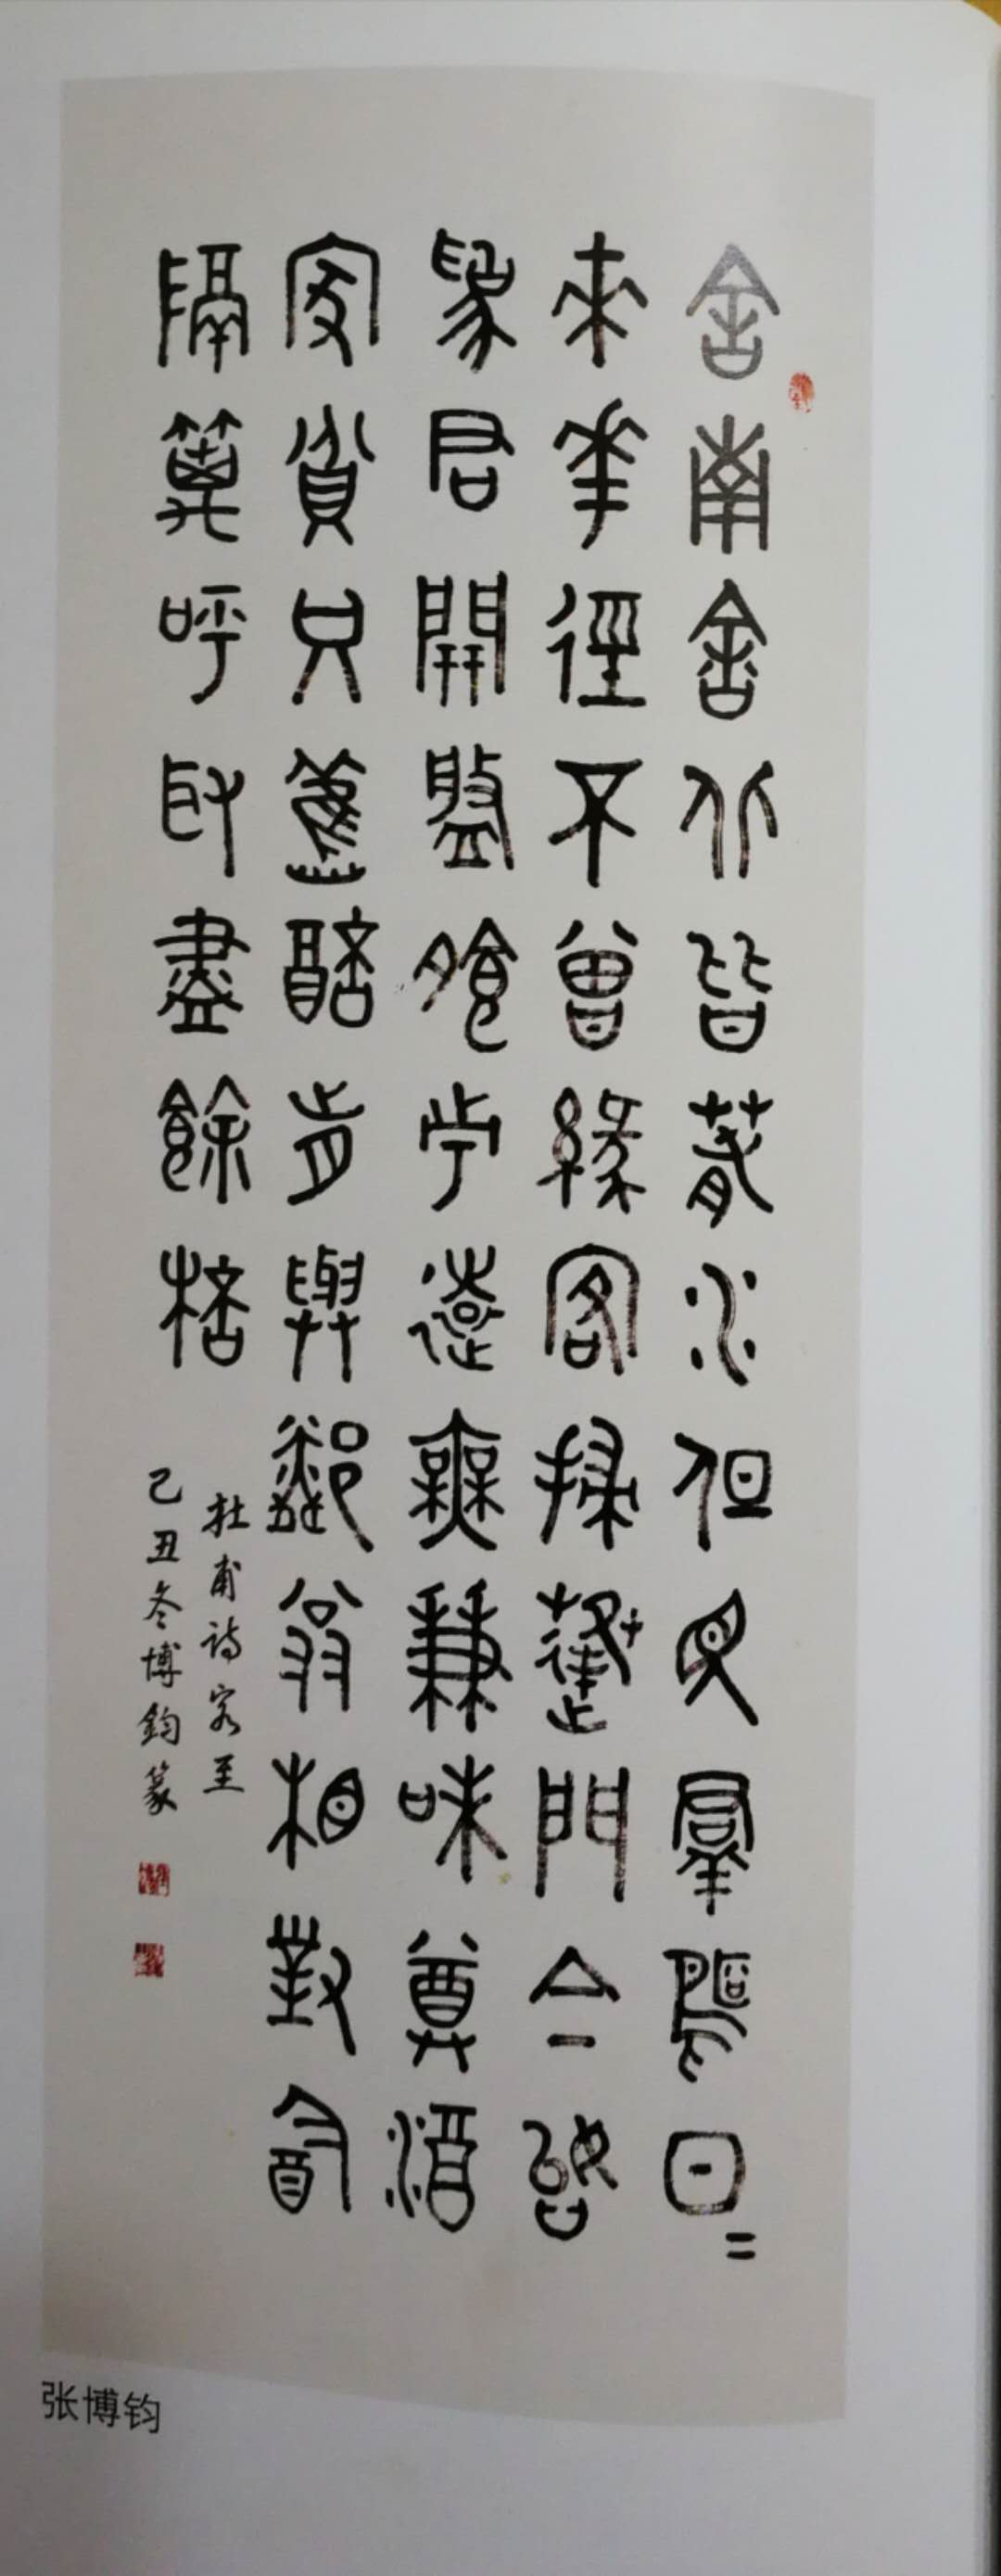 舍南舍北皆春水但見羣鷗日〻
來華徑不曾緣客掃蓬門今始
爲君開盤飧市遠無兼味尊酒
家貧只舊醅肯與鄰翁相對飲
隔籬呼取盡餘桮
杜甫詩客至
己丑冬博鈞篆
张博钧